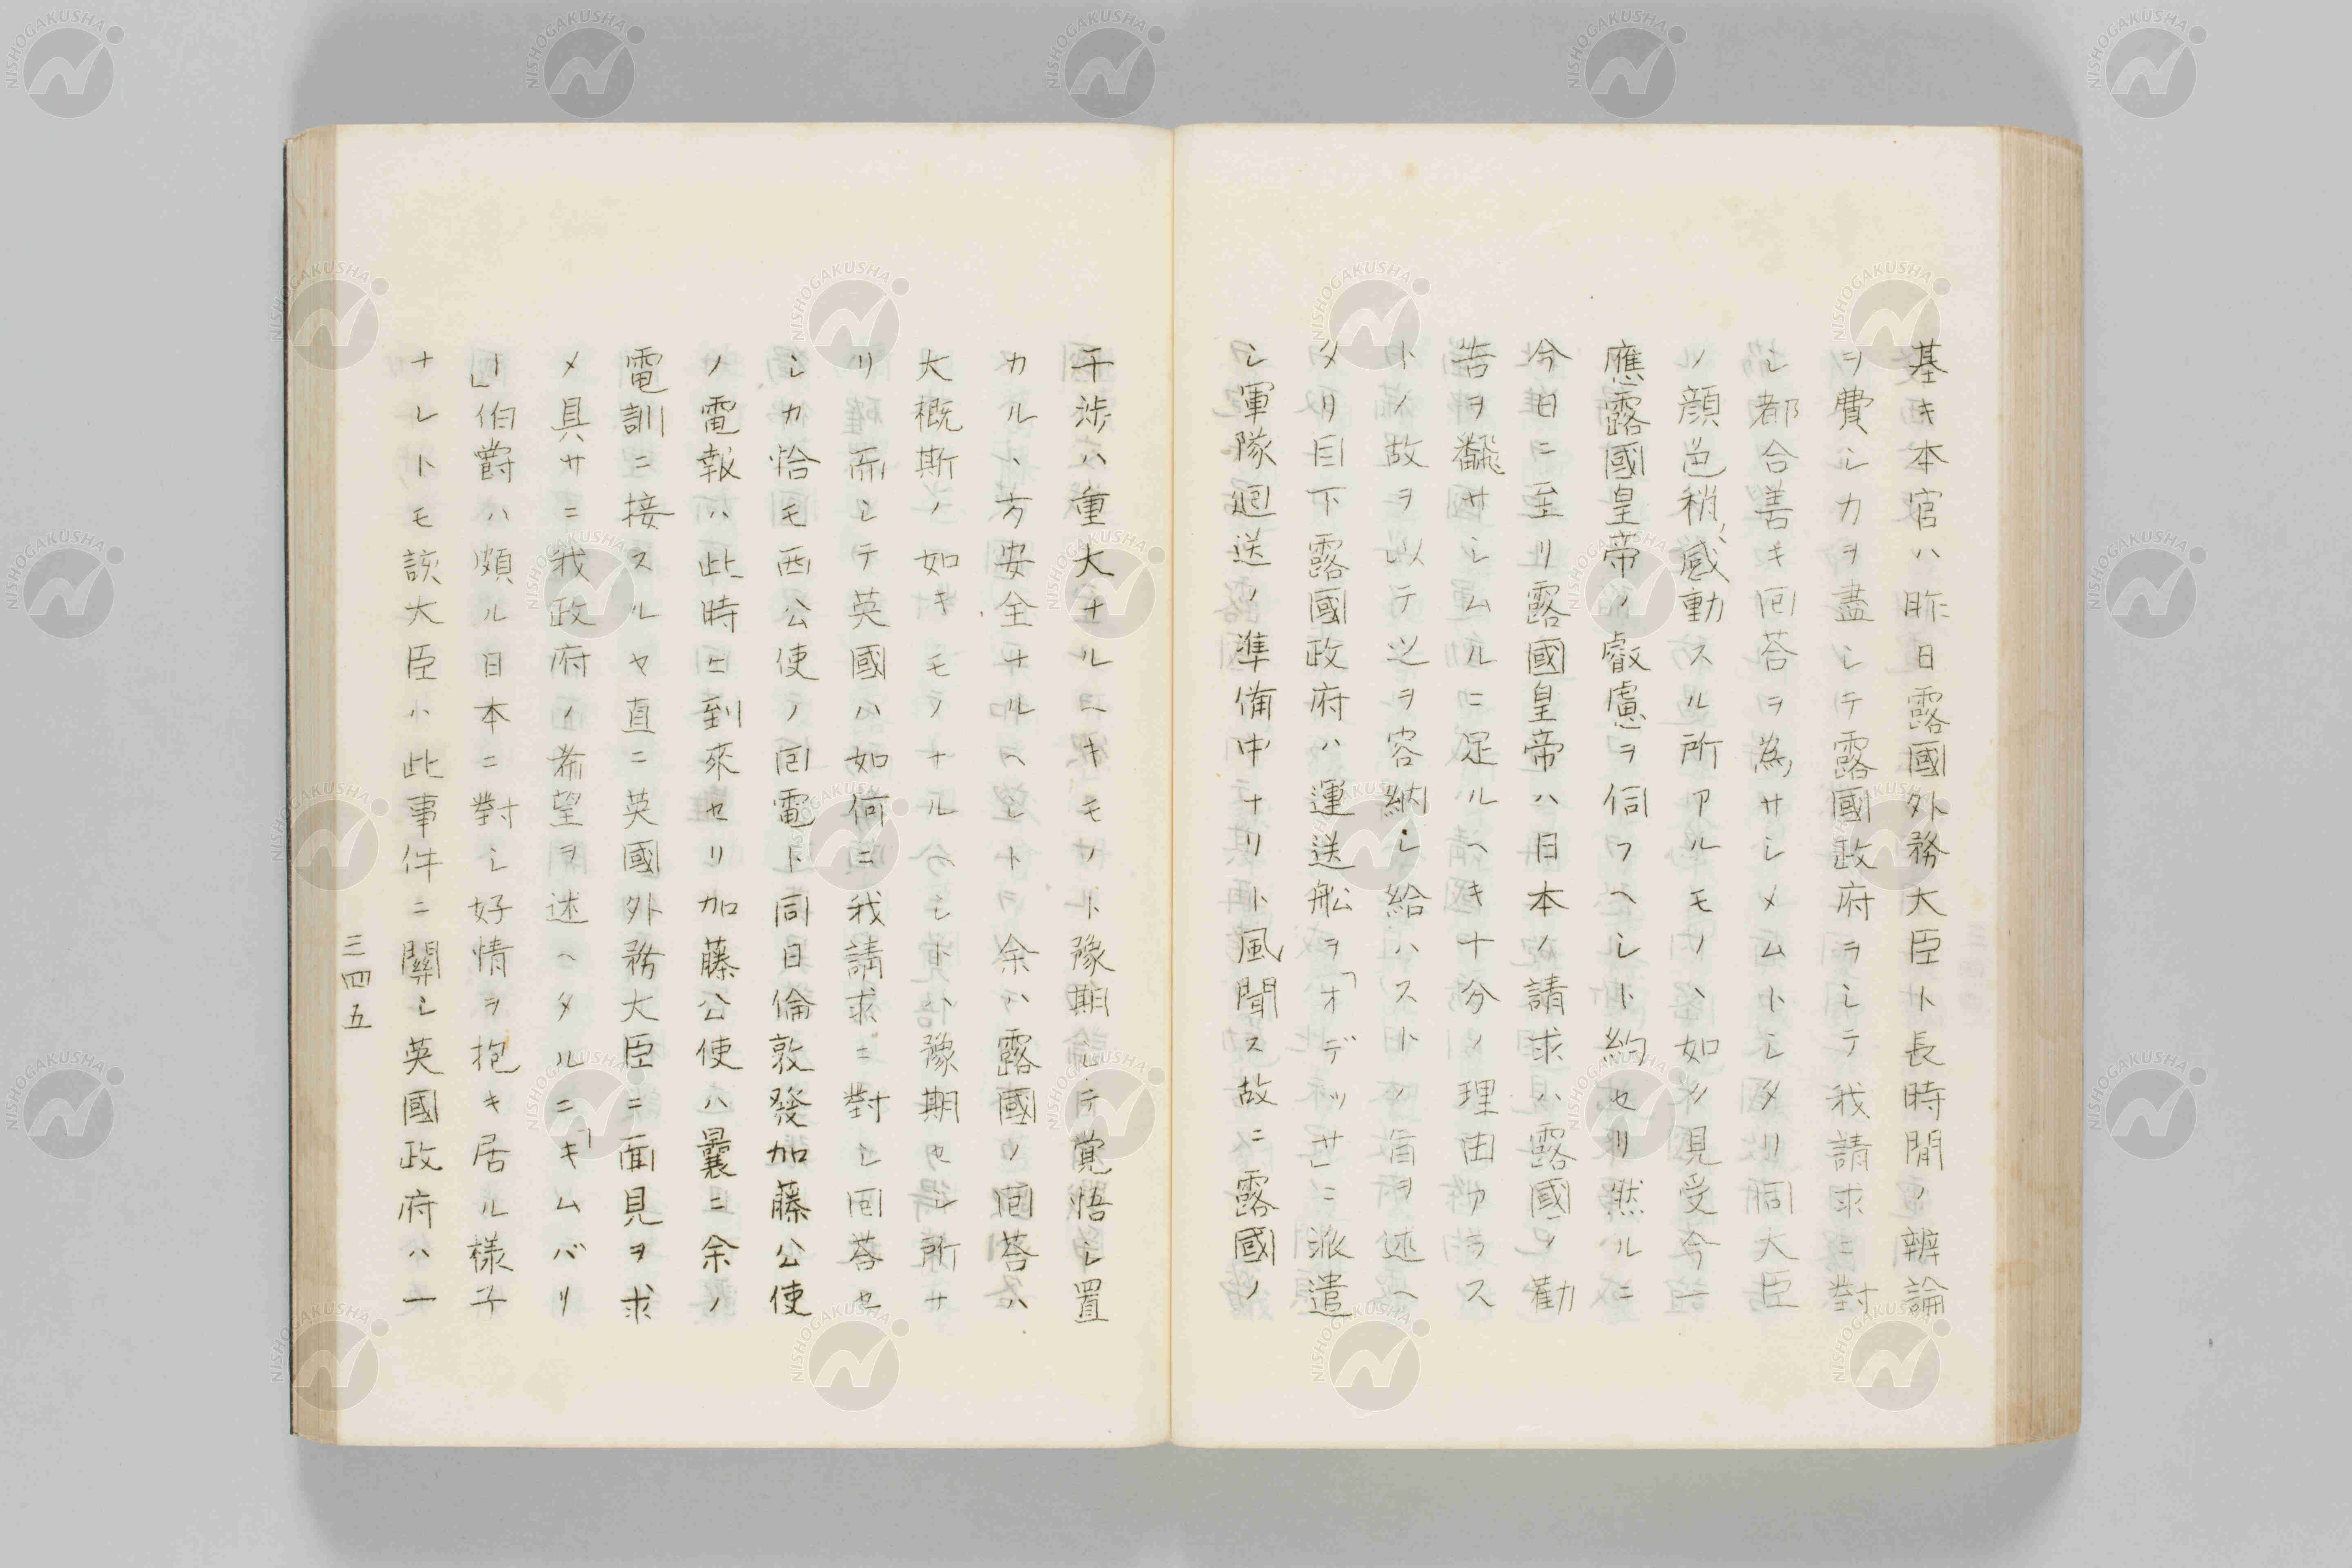 基キ本官ハ昨日露國外務大臣ト長時間ノ辨論
ヲ費シカヲ盡シテ露國政府ヲシテ我請求ニ對
シ都合善キ回荅ヲ為サシメムトシタリ同大臣
ノ顔色稍〻感動スル所アルモノヽ如ク見受今一
應露國皇帝ノ叡慮ヲ伺フヘシト約セリ然ルニ
今日ニ至リ露國皇帝ハ日本ノ請求ハ露國ノ勸
告ヲ飜サシムルニ足ルヘキ十分ノ理由アラス
トノ故ヲ以テ之ヲ容納シ給ハストノ旨ヲ述ヘ
タリ目下露國政府ハ運送船ヲ「オデッサ」ニ派遣
シ軍隊迴送ノ準備中ナリト風聞ス故ニ露國ノ
干渉ハ重大ナルヘキモノト豫期シテ覚悟シ置
カルヽ方安全ナルヘシトヲ余ハ露國ノ回荅ハ
大概斯ノ如キモノナルヘシトハ豫期セシ所ナ
リ而シテ英國ハ如何ニ我請求ニ對シ回荅セ
シカ恰モ西公使ノ回電ト同日倫敦發加藤公使
ノ電報ハ此時ニ到來セリ加藤公使ハ曩ニ余ノ
電訓ニ接スルヤ直ニ英國外務大臣ニ面見ヲ求
メ具サニ我政府ノ希望ヲ述ヘタルニ「キムバリ
ー」伯爵ハ頗ル日本ニ對シ好情ヲ抱キ居ル様子
ナレトモ該大臣ハ此事件ニ關シ英國政府ハ一
三四五
NISHOGAKUSHA